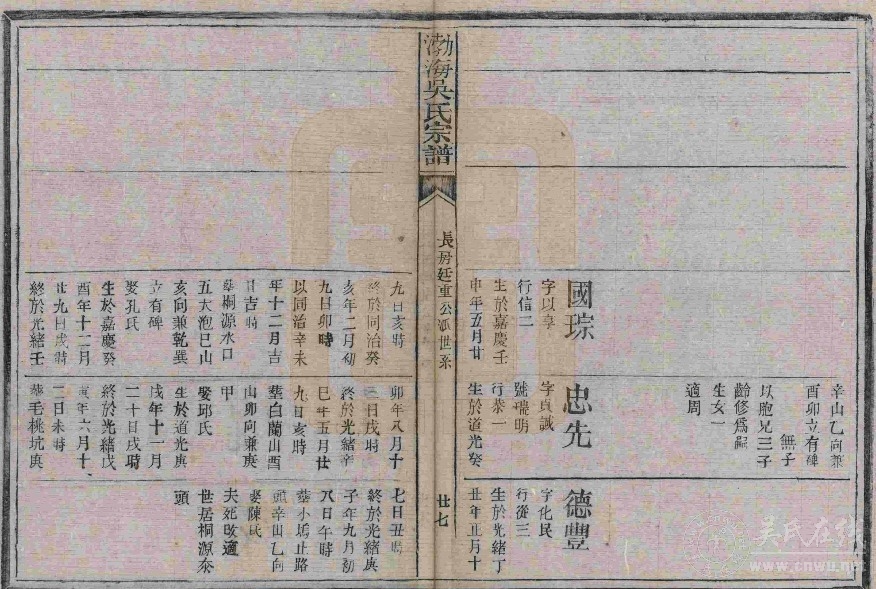 辛山乙向兼
酉卯立有碑
無子
以胞兄三子
齡修為嗣
生女一
適周
國琮
字以享
行信二
生於嘉慶壬
申年五月廿
九日亥時
終於同治癸
亥年二月初
九日卯時
以同治辛未
年十二月吉
日吉時
葬桐源水口
五大泡巳山
亥向兼乾巽
立有碑
娶孔氏
生於嘉慶癸
酉年十二月
廿九日戌時
終於光緒壬
忠先
字真誠
號瑞明
行恭一
生於道光癸
卯年八月十
三日戌時
終於光緒辛
巳年五月廿
九日亥時
葬白蘭山酉
山卯向兼庚
甲
娶邱氏
生於道光庚
戌年十一月
二十日戌時
終於光緒戊
寅年六月十
二日未時
葬毛桃坑庚
德豐
字化民
行從三
生於光緒丁
丑年正月十
七日丑時
終於光緒庚
子年九月初
八日午時
葬小塢止路
頭辛山乙向
娶陳氏
夫死改適
世居桐源众
頭
渤海吳氏宗譜
長房廷重公派世系
廿七
吳氏在线
www.cnwu.net